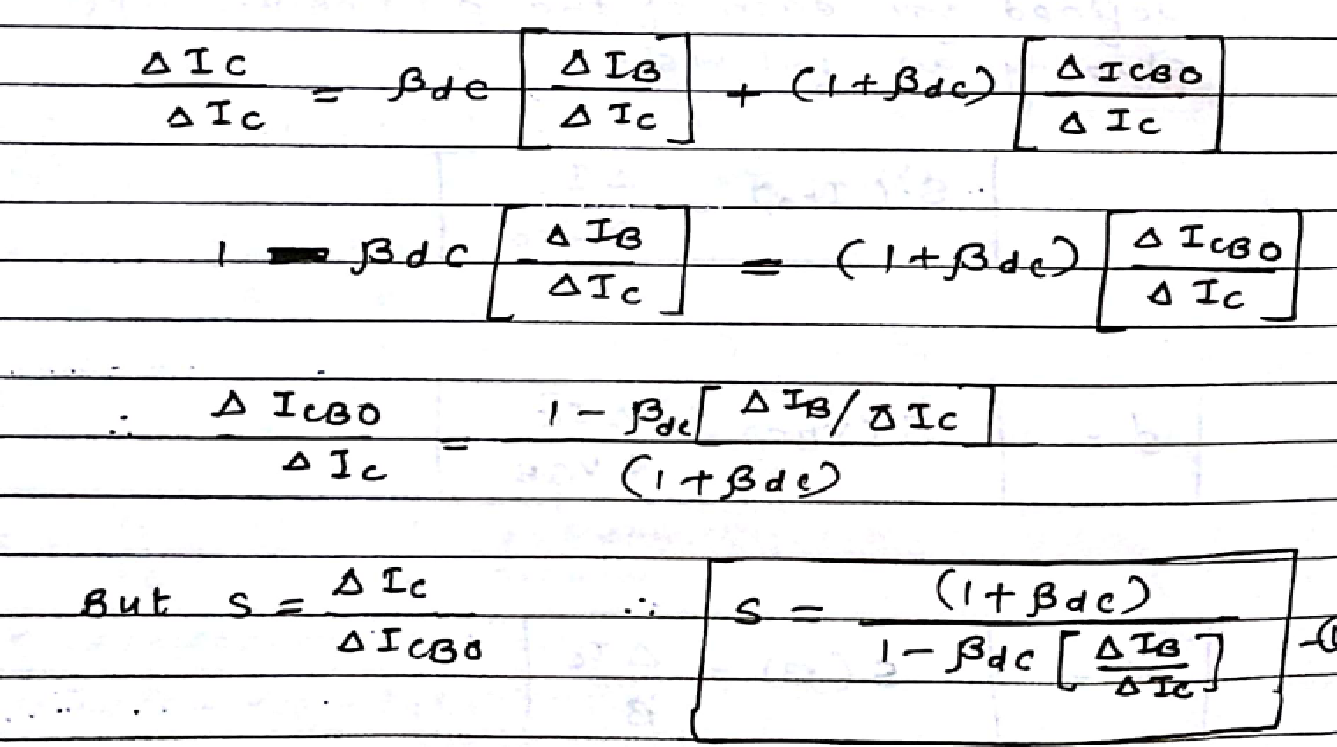 ΔIC/ΔIC = βdc [ΔIB/ΔIC] + (1+βdc) [ΔICBO/ΔIC]
1 − βdc [ΔIB/ΔIC] = (1+βdc) [ΔICBO/ΔIC]
∴ ΔICBO/ΔIC = 1 − βdc[ΔIB/ΔIC] / (1+βdc)
But S = ΔIC/ΔICBO ∴ S = (1+βdc) / 1 − βdc [ΔIB/ΔIC]